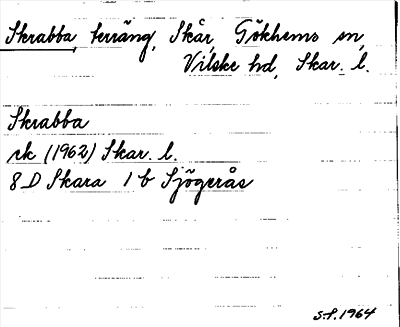 Skrabba, terräng, Skår, Gökhems sn,
Vilske hd, Skar. l.
Skrabba
rk (1962) Skar. l.
8 D Skara 1 b Sjögerås
S.P. 1964